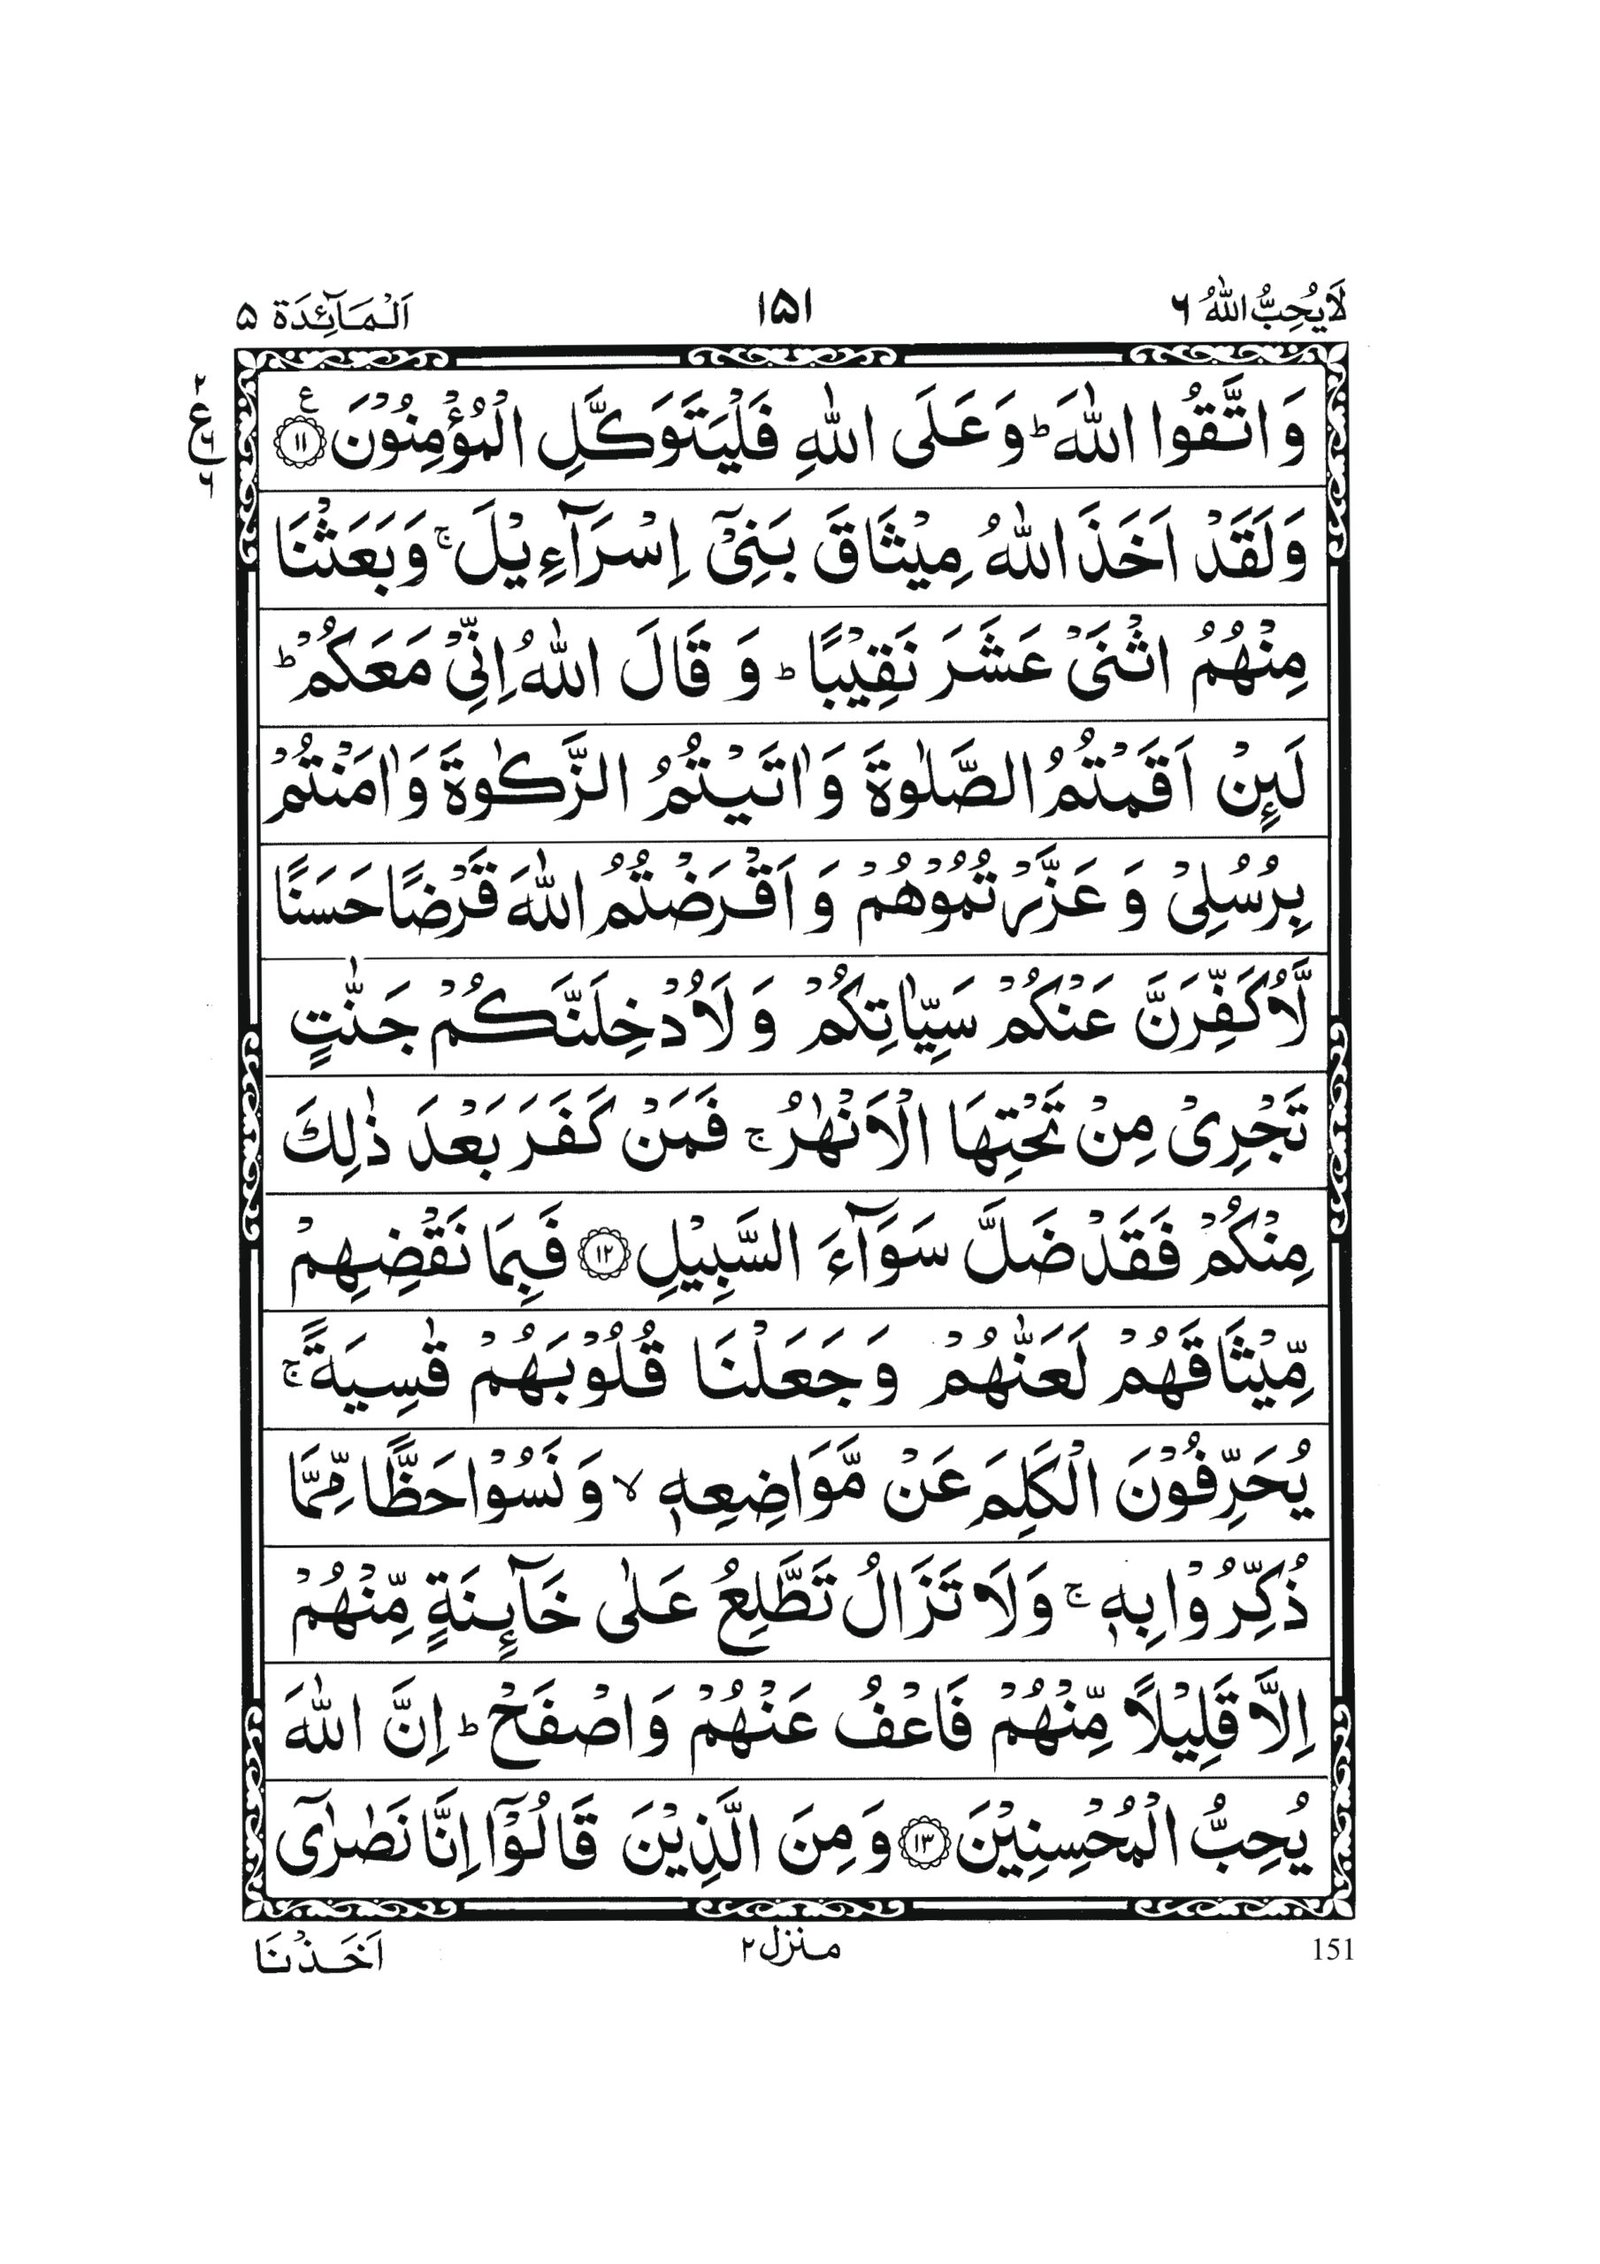 لَا يُحِبُّ اللّٰهُ ٦
١٥١
اَلْمَآئِدَة ٥
وَ اتَّقُوا اللّٰهَ ؕ وَ عَلَى اللّٰهِ فَلْيَتَوَكَّلِ الْمُؤْمِنُوْنَ ۧ ﴿١١﴾
٢
ع
٦
٦
وَلَقَدْ اَخَذَ اللّٰهُ مِيْثَاقَ بَنِيْۤ اِسْرَآءِيْلَ ۚ وَبَعَثْنَا
مِنْهُمُ اثْنَيْ عَشَرَ نَقِيْبًا ؕ وَ قَالَ اللّٰهُ اِنِّيْ مَعَكُمْ ؕ
لَىِٕنْ اَقَمْتُمُ الصَّلٰوةَ وَاٰتَيْتُمُ الزَّكٰوةَ وَاٰمَنْتُمْ
بِرُسُلِيْ وَ عَزَّرْتُمُوْهُمْ وَ اَقْرَضْتُمُ اللّٰهَ قَرْضًا حَسَنًا
لَّاُكَفِّرَنَّ عَنْكُمْ سَيِّاٰتِكُمْ وَ لَاُدْخِلَنَّكُمْ جَنّٰتٍ
تَجْرِيْ مِنْ تَحْتِهَا الْاَنْهٰرُ ۚ فَمَنْ كَفَرَ بَعْدَ ذٰلِكَ
مِنْكُمْ فَقَدْ ضَلَّ سَوَآءَ السَّبِيْلِ ﴿١٢﴾ فَبِمَا نَقْضِهِمْ
مِّيْثَاقَهُمْ لَعَنّٰهُمْ وَجَعَلْنَا قُلُوْبَهُمْ قٰسِيَةً ۚ
يُحَرِّفُوْنَ الْكَلِمَ عَنْ مَّوَاضِعِهٖ ۙ وَ نَسُوْا حَظًّا مِّمَّا
ذُكِّرُوْا بِهٖ ۚ وَلَا تَزَالُ تَطَّلِعُ عَلٰى خَآىِٕنَةٍ مِّنْهُمْ
اِلَّا قَلِيْلًا مِّنْهُمْ فَاعْفُ عَنْهُمْ وَاصْفَحْ ؕ اِنَّ اللّٰهَ
يُحِبُّ الْمُحْسِنِيْنَ ﴿١٣﴾ وَمِنَ الَّذِيْنَ قَالُوْۤا اِنَّا نَصٰرٰۤى
151
منزل ٢
اَخَذْنَا